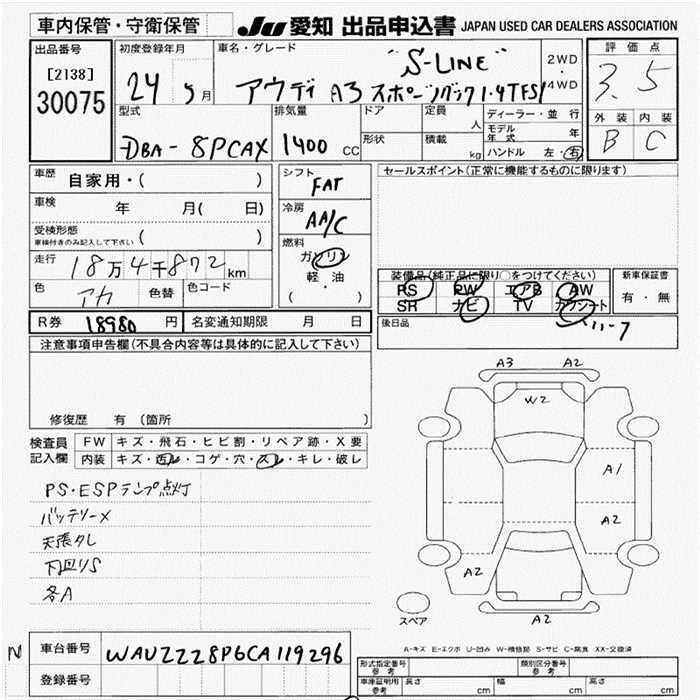 車内保管・守衛保管 JU 愛知 出品申込書 JAPAN USED CAR DEALERS ASSOCIATION
出品番号 初度登録年月 車名・グレード 評価点
[2138] 24 5月 "S-LINE" 2WD・4WD 3.5
30075 アウディ A3 スポーツバック 1.4TFSI
型式 排気量 ドア 定員 人 ディーラー・並行 外装 内装
DBA-8PCAX 1400 CC 形状 積載 kg モデル年式 年 B C
ハンドル 左・右
車歴 自家用・( ) シフト FAT セールスポイント(正常に機能するものに限ります)
車検 年 月( 日) 冷房 AA/C
受検形態 車検付きのみ記入して下さい ( ) 燃料 ガソリン
走行 18万4千872km 軽・油
色 アカ 色替 色コード ( )
装備品(純正品に限り〇をつけてください) 新車保証書
PS PW エアB AW 有・無
SR ナビ TV カワシート
R券 18980円 名変通知期限 月 日 後日品
注意事項申告欄(不具合内容等は具体的に記入して下さい)
修復歴 有 (箇所 )
検査員記入欄 FW キズ・飛石・ヒビ割・リペア跡・X要
内装 キズ・汚レ・コゲ・穴・スレ・キレ・破レ
PS・ESPランプ点灯
バッテリーX
天張タレ
下回りS
各A
A3 A2
W2
A1
A2
A2
A2
スペア
A-キズ E-エクボ U-凹み W-補修跡 S-サビ C-腐食 XX-交換済
N 車台番号 WAUZZZ8P6CA119296
登録番号
形式指定番号 参考 類別区分番号 参考
車庫証明用 参考 長さ cm 幅 cm 高さ cm